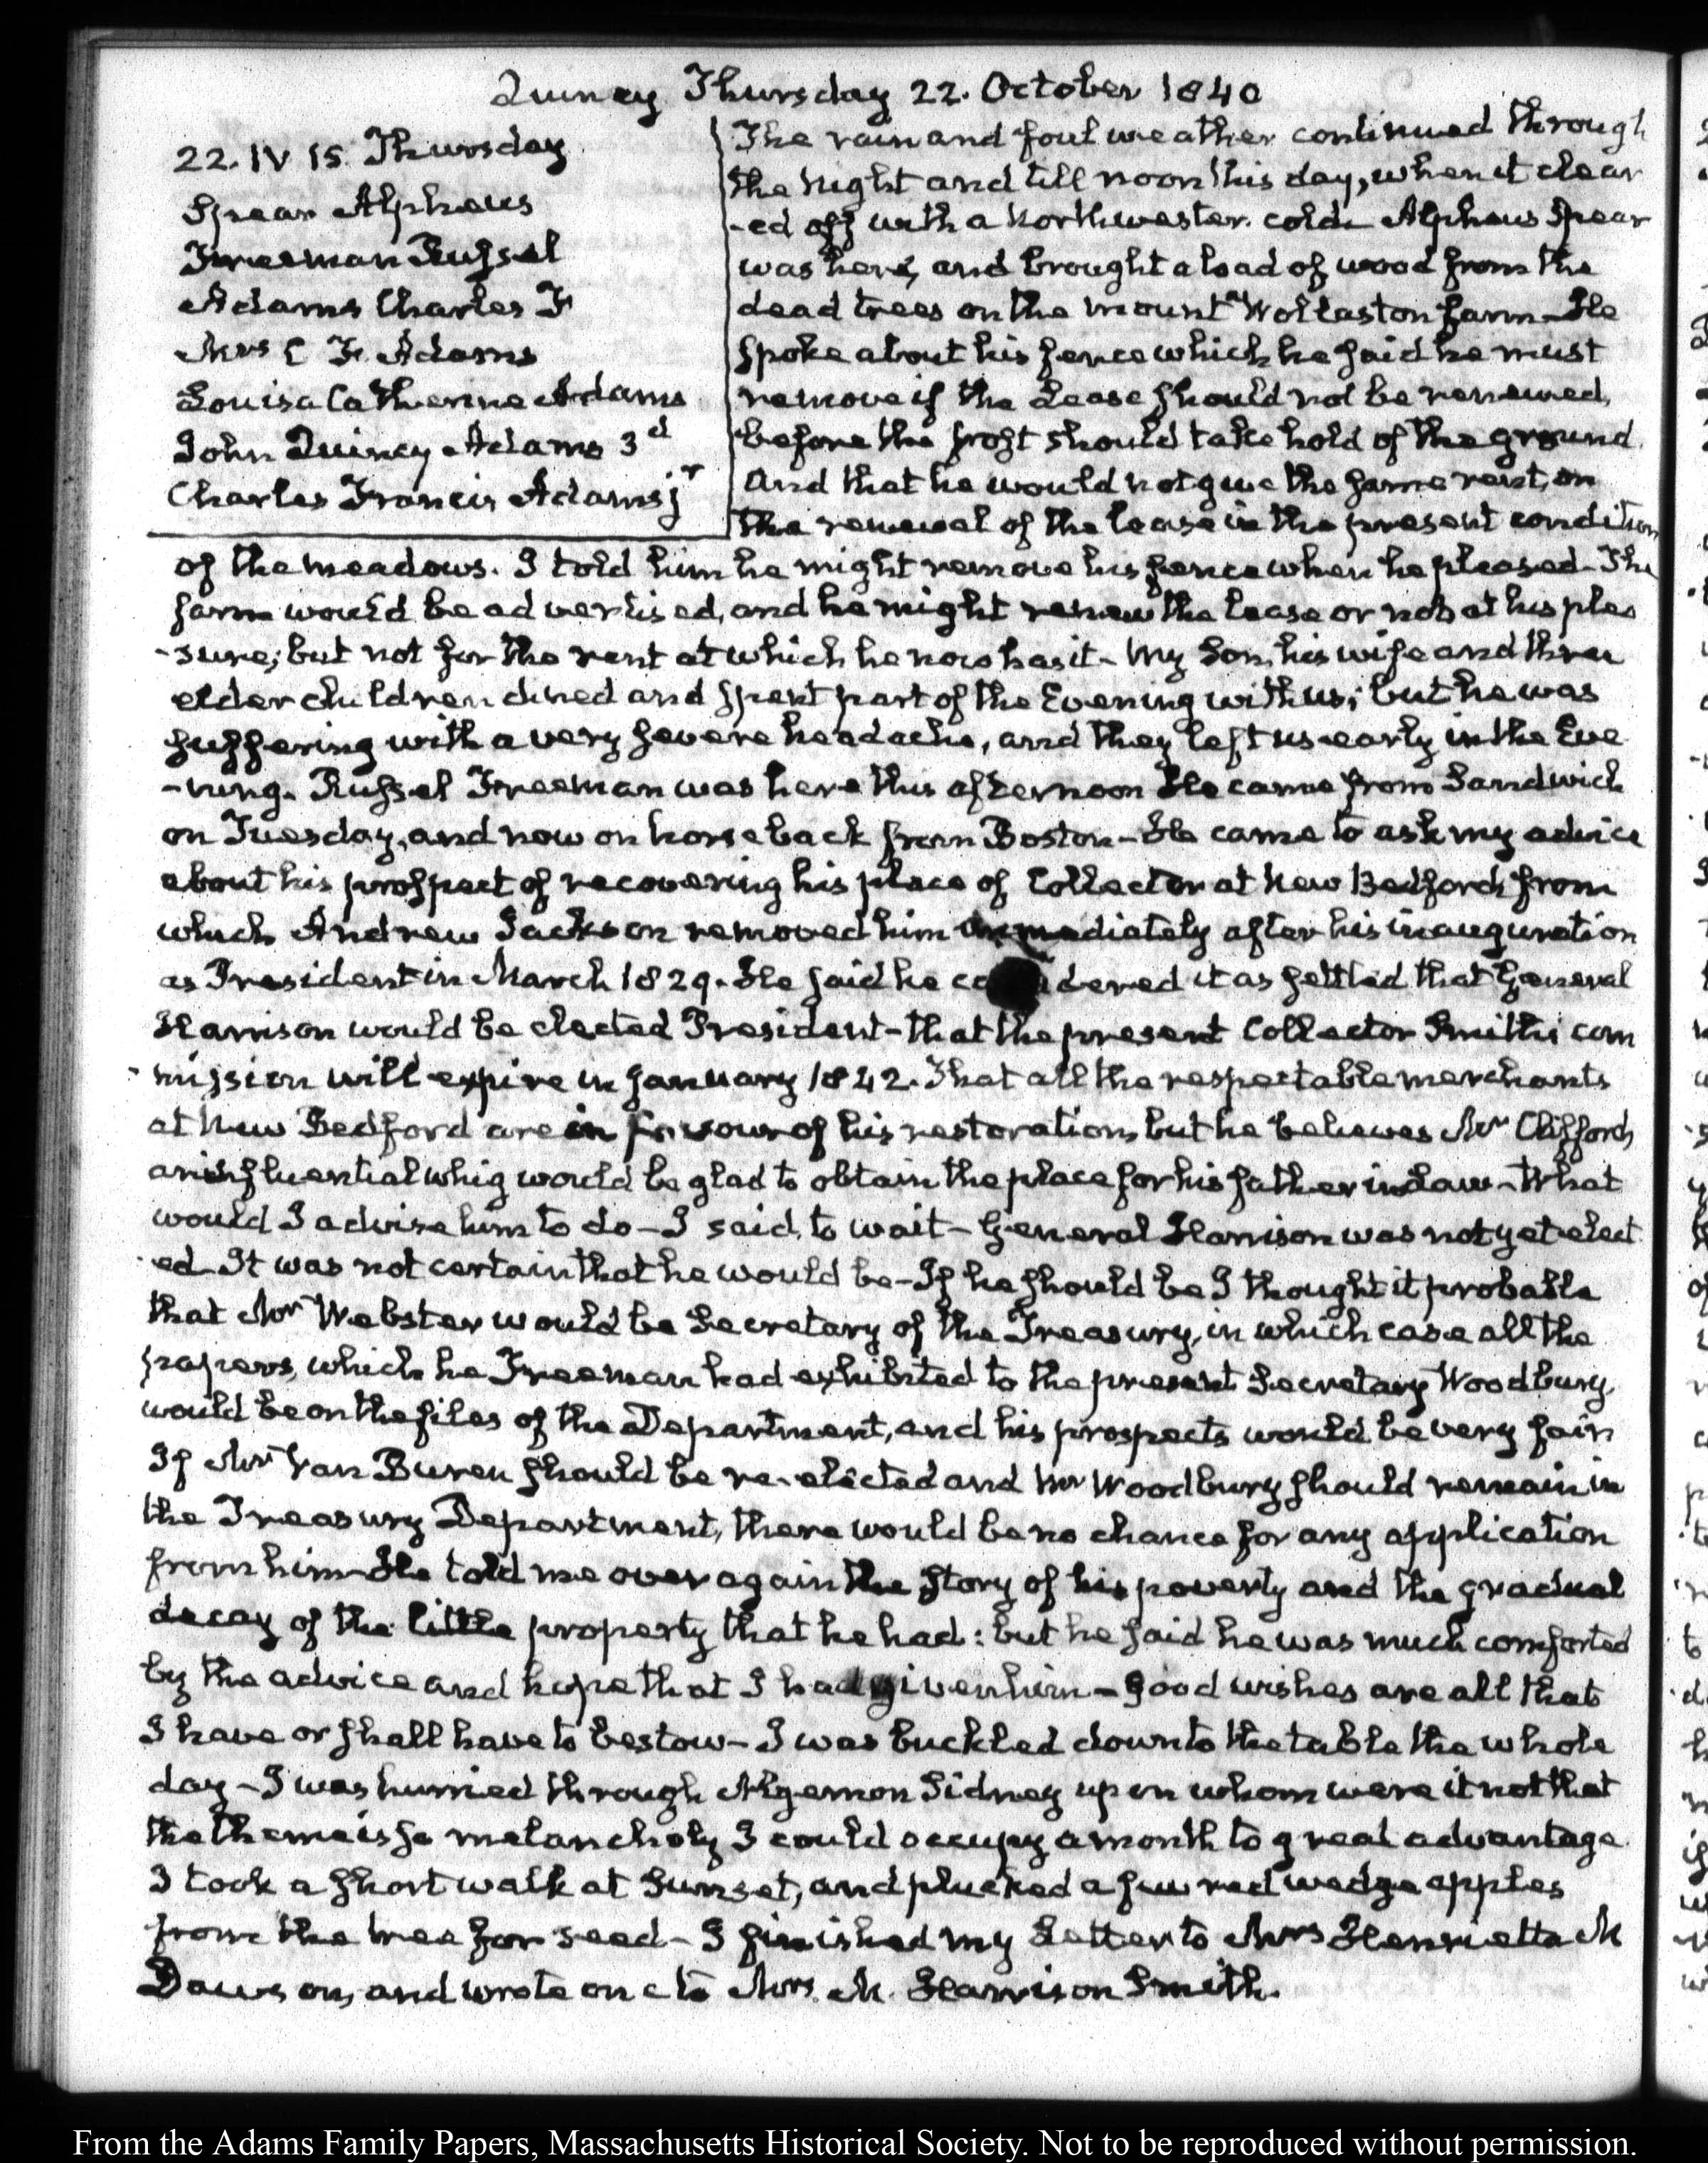 Quincy Thursday 22. October 1840
22. IV 15. Thursday
Spear Alpheus
Freeman Russel
Adams Charles F
Mrs C. F. Adams
Louisa Catherine Adams
John Quincy Adams 3d
Charles Francis Adams jr
The rain and foul weather continued through
the night and till noon this day, when it clear
-ed off with a Northwester. cold. Alpheus Spear
was here, and brought a load of wood from the
dead trees on the mount Wollaston farm- He
spoke about his fence which he said he must
remove if the Lease should not be renewed,
before the frost should take hold of the ground.
And that he would not give the same rent, on
the renewal of the lease in the present condition
of the meadows. I told him he might remove his fence when he pleased- The
farm would be advertised, and he might renew the lease or not at his plea
-sure; but not for the rent at which he now has it- My Son, his wife and three
elder children dined and spent part of the Evening with us; but he was
suffering with a very severe headache, and they left us early in the Eve
-ning. Russel Freeman was here this afternoon He came from Sandwich
on Tuesday, and now on horseback from Boston- He came to ask my advice
about his prospect of recovering his place of Collector at New Bedford, from
which Andrew Jackson removed him immediately after his inauguration
as President in March 1829. He said he considered it as settled that General
Harrison would be elected President- that the present Collector Smith's com
-mission will expire in January 1842. That all the respectable merchants
at New Bedford are in favour of his restoration, but he believes Mr Clifford,
an influential whig would be glad to obtain the place for his father in Law- What
would I advise him to do- I said, to wait- General Harrison was not yet elect
-ed- It was not certain that he would be- If he should be I thought it probable
that Mr Webster would be Secretary of the Treasury, in which case all the
papers, which he Freeman had exhibited to the present Secretary Woodbury,
would be on the files of the Department, and his prospects would be very fair
If Mr Van Buren should be re-elected and Mr Woodbury should remain in
the Treasury Department, there would be no chance for any application
from him- He told me over again the story of his poverty and the gradual
decay of the little property that he had: but he said he was much comforted
by the advice and hope that I had given him- Good wishes are all that
I have or shall have to bestow- I was buckled down to the table the whole
day- I was hurried through Algernon Sidney upon whom were it not that
the theme is so melancholy I could occupy a month to great advantage.
I took a short walk at Sunset, and plucked a few red wedge apples
from the tree for seed- I finished my Letter to Mrs Henrietta M
Dawson, and wrote one to Mrs. M. Harrison Smith.
From the Adams Family Papers, Massachusetts Historical Society. Not to be reproduced without permission.